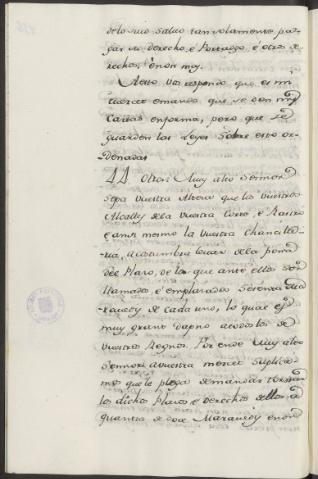 de lo suio salvo tan solamente pa-
gar su derecho, e Portazgo, e otros de-
rechos, é non mas.
A esto vos respondo que es mi
merced e mando, que se den mis
Cartas en forma, pero que se
guarden las Leyes sobre esto or-
denadas
44 Otrosi Muy alto Señor
sepa vuestra Alteza que los vuestros
Alcalldes de la vuestra Corte, e Rastro
e ansi mesmo la vuestra Chancille-
ria, acostumbra levar de la pena
del Plazo, de los que ante ellos son
llamados, e emplazados sesenta ma-
ravedis de cada uno, lo qual es
muy grant dapno a todos los de
vuestros Regnos. Por ende Muy alto
Señor a vuestra merced suplica-
mos que le plega de mandar
los dichos Plazos e derechos dellos a
quantia de doce Maravedis e non